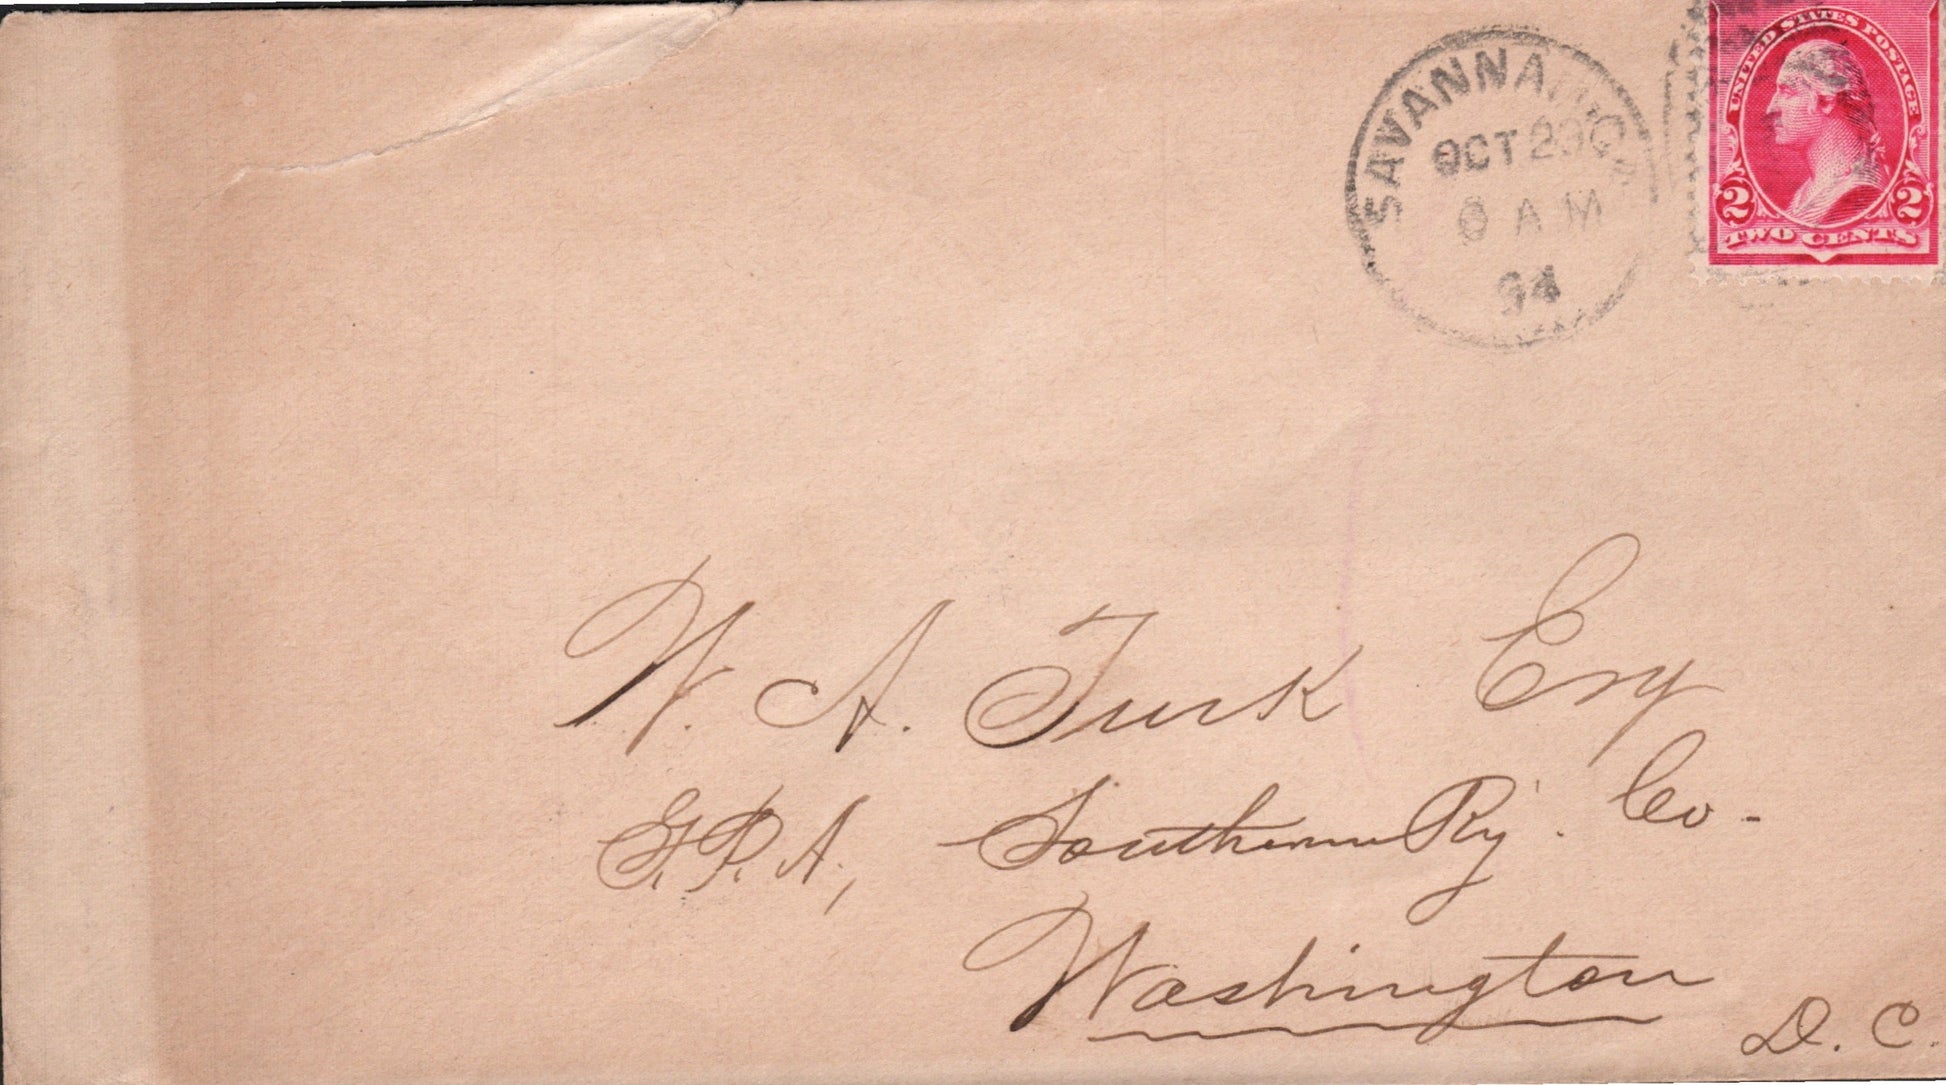 SAVANNAH, GA.
OCT 29
AM
94
UNITED STATES POSTAGE
2 2
TWO CENTS
W. A. Turk Esq
G.P.A, Southern Ry. Co.
Washington
D. C.